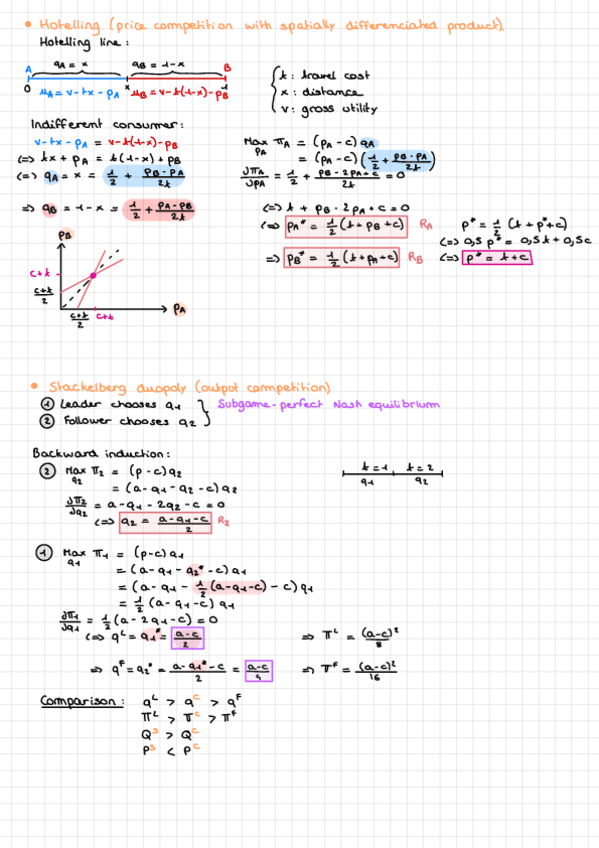 • Hotelling (price competition with spatially differenciated product).
Hotelling line:
A qA = x qB = 1-x B
0 uA = v-tx-pA x uB = v-t(1-x)-pB 1
t: travel cost
x: distance
v: gross utility
Indifferent consumer:
v-tx-pA = v-t(1-x)-pB
(=) tx + pA = t(1-x) + pB
(=) qA = x = 1/2 + (pB-pA)/2t
=> qB = 1-x = 1/2 + (pA-pB)/2t
Max πA = (pA-c) qA
pA
= (pA-c) (1/2 + (pB-pA)/2t)
∂πA/∂pA = 1/2 + (pB-2pA+c)/2t = 0
(=) t + pB - 2pA + c = 0
(=) pA* = 1/2 (t + pB + c) RA
=> pB* = 1/2 (t + pA + c) RB
p* = 1/2 (t + p* + c)
(=) 0,5 p* = 0,5t + 0,5c
(=) p* = t + c
pB
c+t
(c+t)/2
pA
(c+t)/2 c+t
• Stackelberg duopoly (output competition)
① Leader chooses q1
② Follower chooses q2
Subgame-perfect Nash equilibrium
Backward induction:
② Max π2 = (p-c) q2
q2
= (a-q1-q2-c) q2
∂π2/∂q2 = a-q1-2q2-c = 0
(=) q2 = (a-q1-c)/2 R2
t=1 t=2
q1 q2
① Max π1 = (p-c) q1
q1
= (a-q1-q2*-c) q1
= (a-q1-1/2(a-q1-c)-c) q1
= 1/2 (a-q1-c) q1
∂π1/∂q1 = 1/2 (a-2q1-c) = 0
(=) qL = q1* = (a-c)/2 => πL = (a-c)²/8
=> qF = q2* = (a-q1*-c)/2 = (a-c)/4 => πF = (a-c)²/16
Comparison: qL > qC > qF
πL > πC > πF
QS > QC
PS < PC